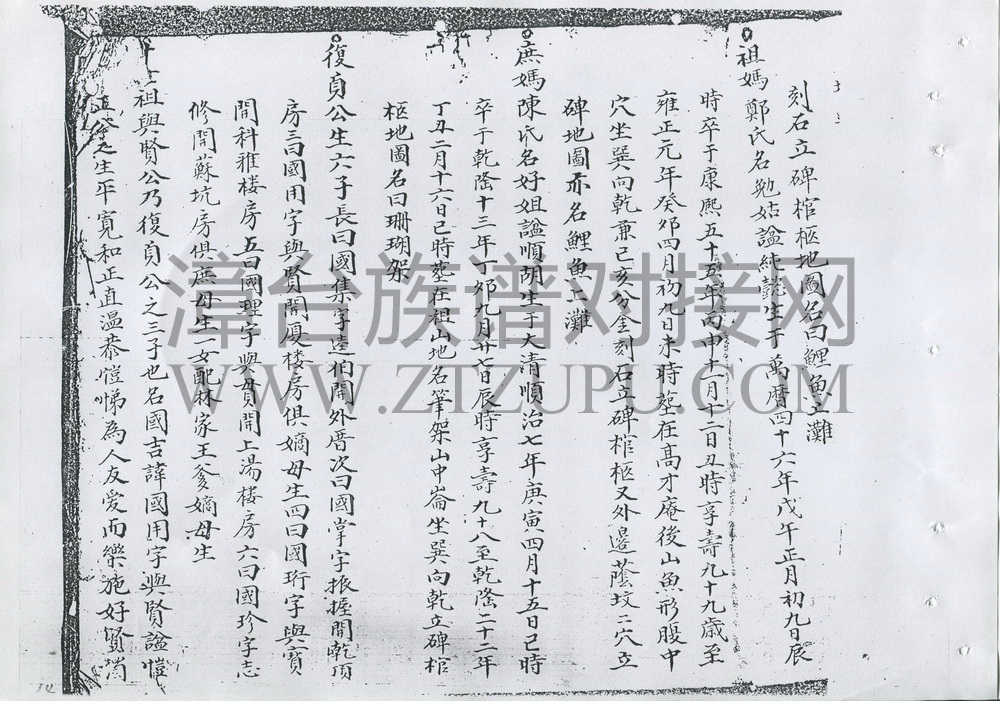 刻石立碑棺柩地圖名曰鯉魚上灘
祖媽鄭氏名勉姑諡純懿生于萬曆四十六年戊午正月初九日辰
時卒于康熙五十五年丙申十一月十二日丑時享壽九十九歲至
雍正元年癸夘四月初九日未時塟在髙才庵後山魚形腹中
穴坐巽向乾兼己亥分金刻石立碑棺柩又外邉蔭坟二穴立
碑地圖亦名鯉魚上灘
庶媽陳氏名好姐諡順胡生于大清順治七年庚寅四月十五日己時
卒于乾隆十三年丁夘九月廿七日辰時享壽九十八至乾隆二十二年
丁丑二月十六日己時塟在祖山地名筆架山中崙坐巽向乾立碑棺
柩地圖名曰珊瑚架
復貟公生六子長曰國集字遠伯開外厝次曰國掌字振握開乾頂
房三曰國用字與賢開厦楼房俱嫡母生四曰國珩字與賓
開科雅楼房五曰國理字與貫開上湯楼房六曰國珍字志
修開蘇坑房俱庶母生一女配林家王爹嫡母生
祖與賢公乃復貟公之三子也名國吉諱國用字與賢諡愷
生平寛和正直温恭愷悌為人友爱而樂施好賢
漳台族谱对接网
WWW.ZTZUPU.COM